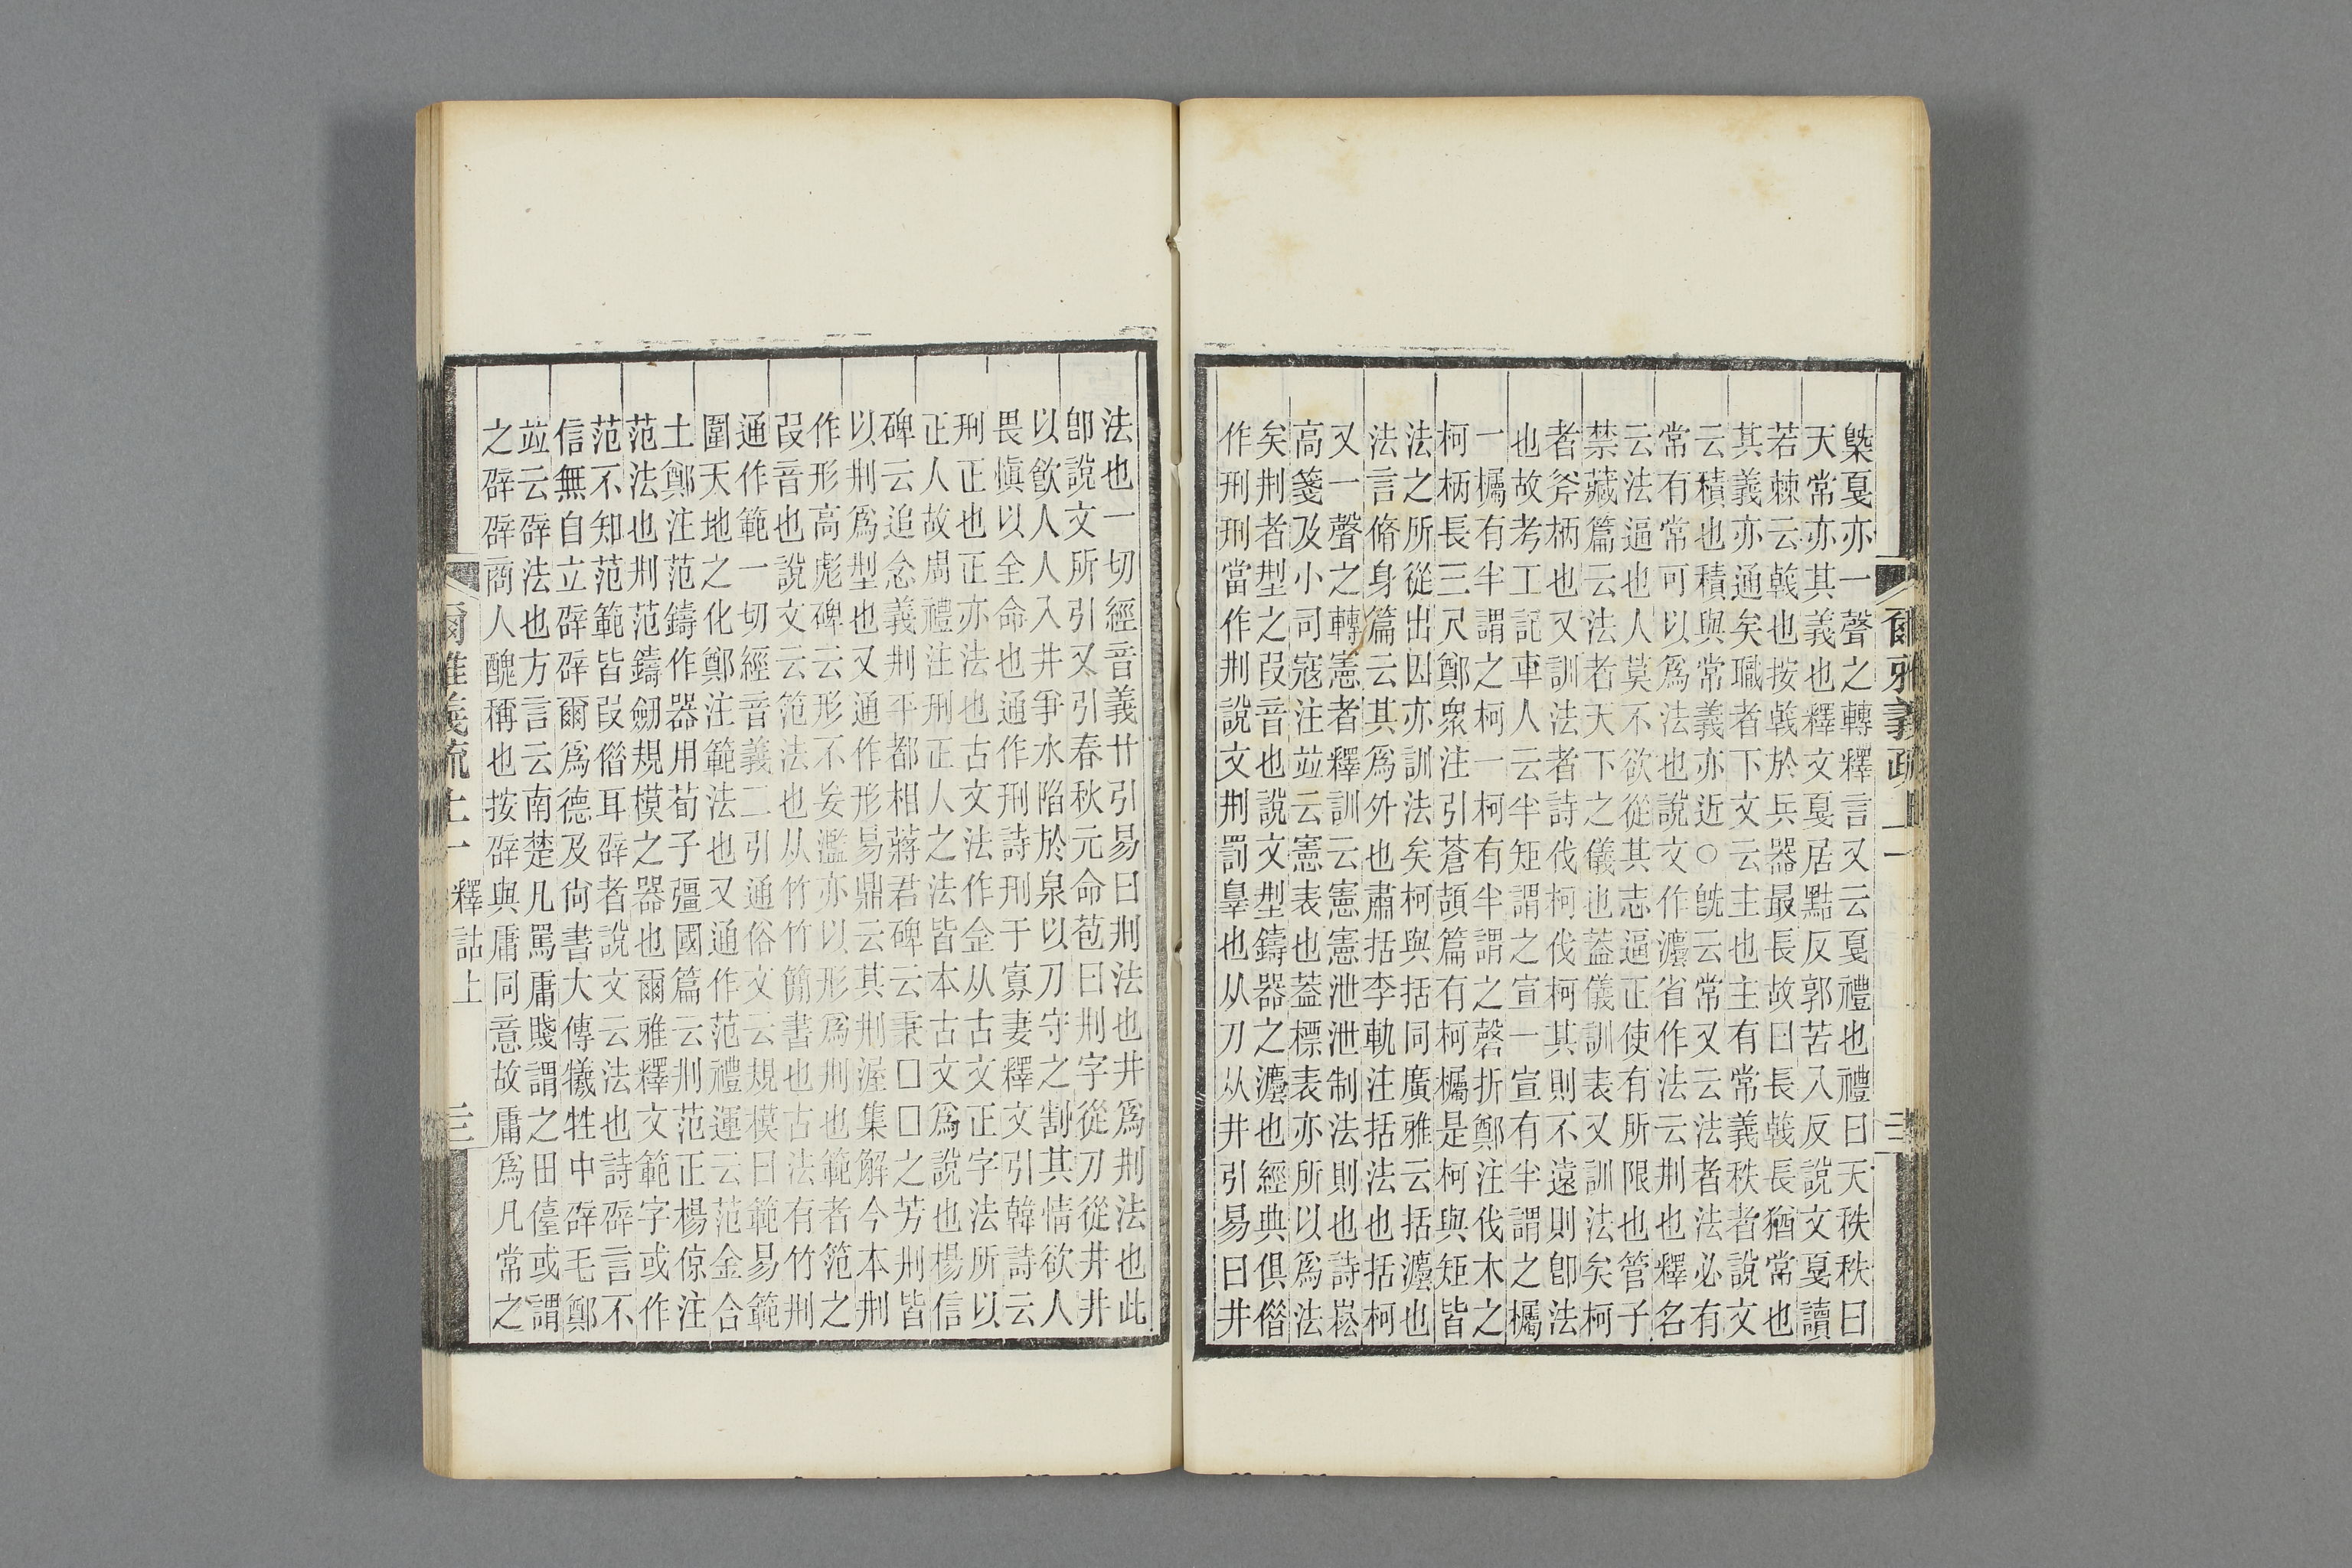 槩戛亦一聲之轉釋言又云戛禮也禮曰天秩秩曰
天常亦其義也釋文戛居黠反郭苦八反說文戛讀
若棘云戟也按戟於兵器最長故曰長戟長猶常也
其義亦通矣職者下文云主也主有常義秩者說文
云積也積與常義亦近○旣云常又云法者法必有
常有常可以爲法也說文作灋省作法云㓝也釋名
云法逼也人莫不欲從其志逼正使有所限也管子
禁藏篇云法者天下之儀也蓋儀訓表又訓法矣柯
者斧柄也又訓法者詩伐柯伐柯其則不遠則卽法
也故考工記車人云半矩謂之宣一宣有半謂之欘
一欘有半謂之柯一柯有半謂之磬折鄭注伐木之
柯柄長三尺鄭衆注引蒼頡篇有柯欘是柯與矩皆
法之所從出因亦訓法矣柯與括同廣雅云括灋也
法言脩身篇云其爲外也肅括李軌注括法也括柯
又一聲之轉憲者釋訓云憲憲泄泄制法則也詩崧
高箋及小司寇注竝云憲表也蓋標表亦所以爲法
矣㓝者型之叚音也說文型鑄器之灋也經典俱借
作刑刑當作㓝說文㓝罰辠也从刀从井引易曰井
法也一切經音義廿引易曰㓝法也井爲㓝法也此
卽說文所引又引春秋元命苞曰㓝字從刀從井井
以飮人人入井爭水陷於泉以刀守之割其情欲人
畏愼以全命也通作刑詩刑于寡妻釋文引韓詩云
刑正也正亦法也古文法作佱从古文正字法所以
正人故周禮注刑正人之法皆本古文爲說也楊信
碑云追念義㓝平都相蔣君碑云秉囗囗之芳㓝皆
以㓝爲型也又通作形易鼎云其㓝渥集解今本㓝
作形高彪碑云形不妄濫亦以形爲㓝也範者笵之
叚音也說文云笵法也从竹竹簡書也古法有竹㓝
通作範一切經音義二引通俗文云規模曰範易範
圍天地之化鄭注範法也又通作范禮運云范金合
土鄭注范鑄作器用荀子彊國篇云㓝范正楊倞注
范法也㓝范鑄劒規模之器也爾雅釋文範字或作
范不知范範皆叚借耳辟者說文云法也詩辟言不
信無自立辟辟爾爲德及尙書大傳犧牲中辟毛鄭
竝云辟法也方言云南楚凡罵庸賤謂之田儓或謂
之辟辟商人醜稱也按辟與庸同意故庸爲凡常之
爾雅義疏上一 釋詁上 三